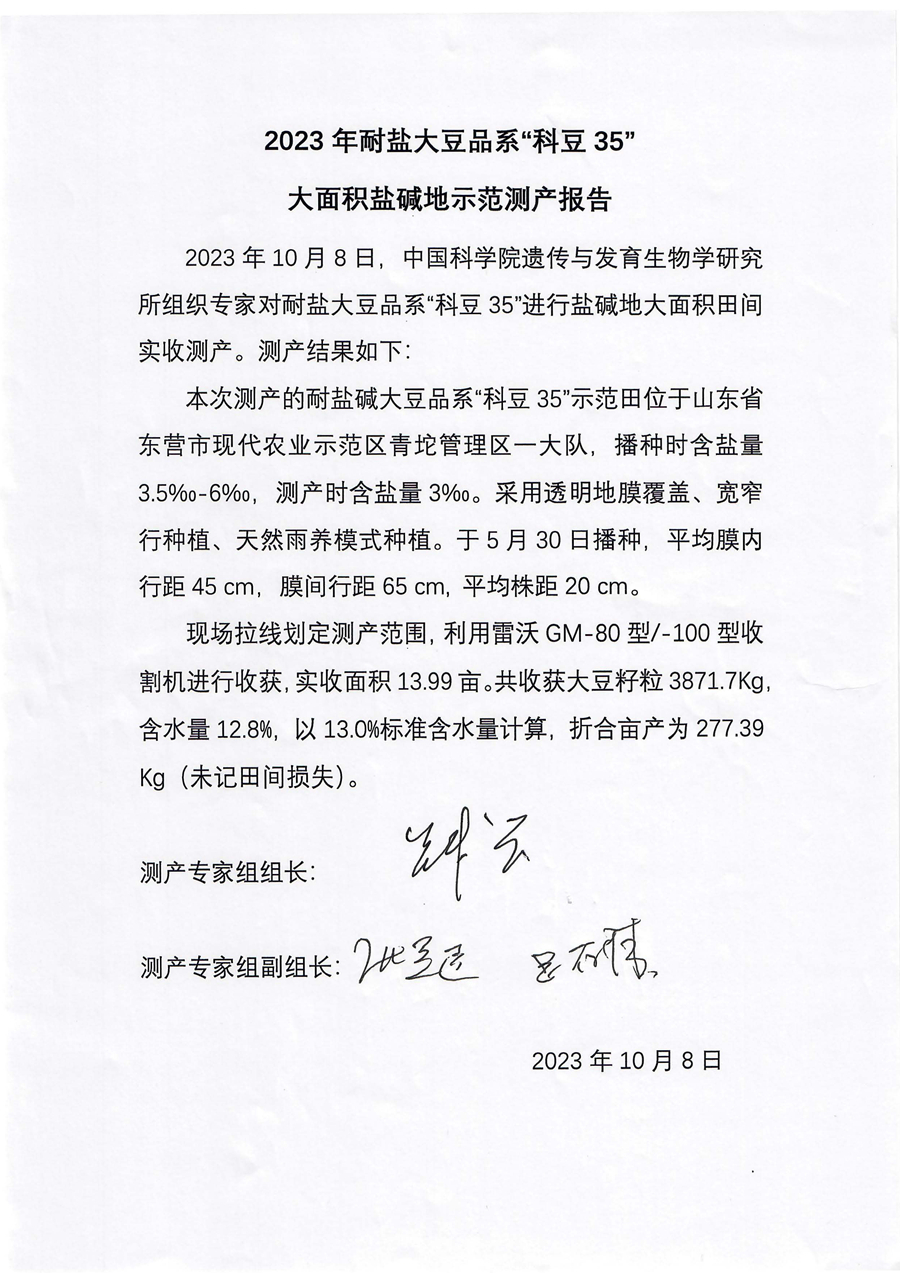 2023 年耐盐大豆品系“科豆 35”
大面积盐碱地示范测产报告
2023 年 10 月 8 日，中国科学院遗传与发育生物学研究
所组织专家对耐盐大豆品系“科豆 35”进行盐碱地大面积田间
实收测产。测产结果如下：
本次测产的耐盐碱大豆品系“科豆 35”示范田位于山东省
东营市现代农业示范区青坨管理区一大队，播种时含盐量
3.5‰-6‰，测产时含盐量 3‰。采用透明地膜覆盖、宽窄
行种植、天然雨养模式种植。于 5 月 30 日播种，平均膜内
行距 45 cm，膜间行距 65 cm，平均株距 20 cm。
现场拉线划定测产范围，利用雷沃 GM-80 型/-100 型收
割机进行收获，实收面积 13.99 亩。共收获大豆籽粒 3871.7Kg，
含水量 12.8%，以 13.0%标准含水量计算，折合亩产为 277.39
Kg（未记田间损失）。
测产专家组组长：
测产专家组副组长：
2023 年 10 月 8 日